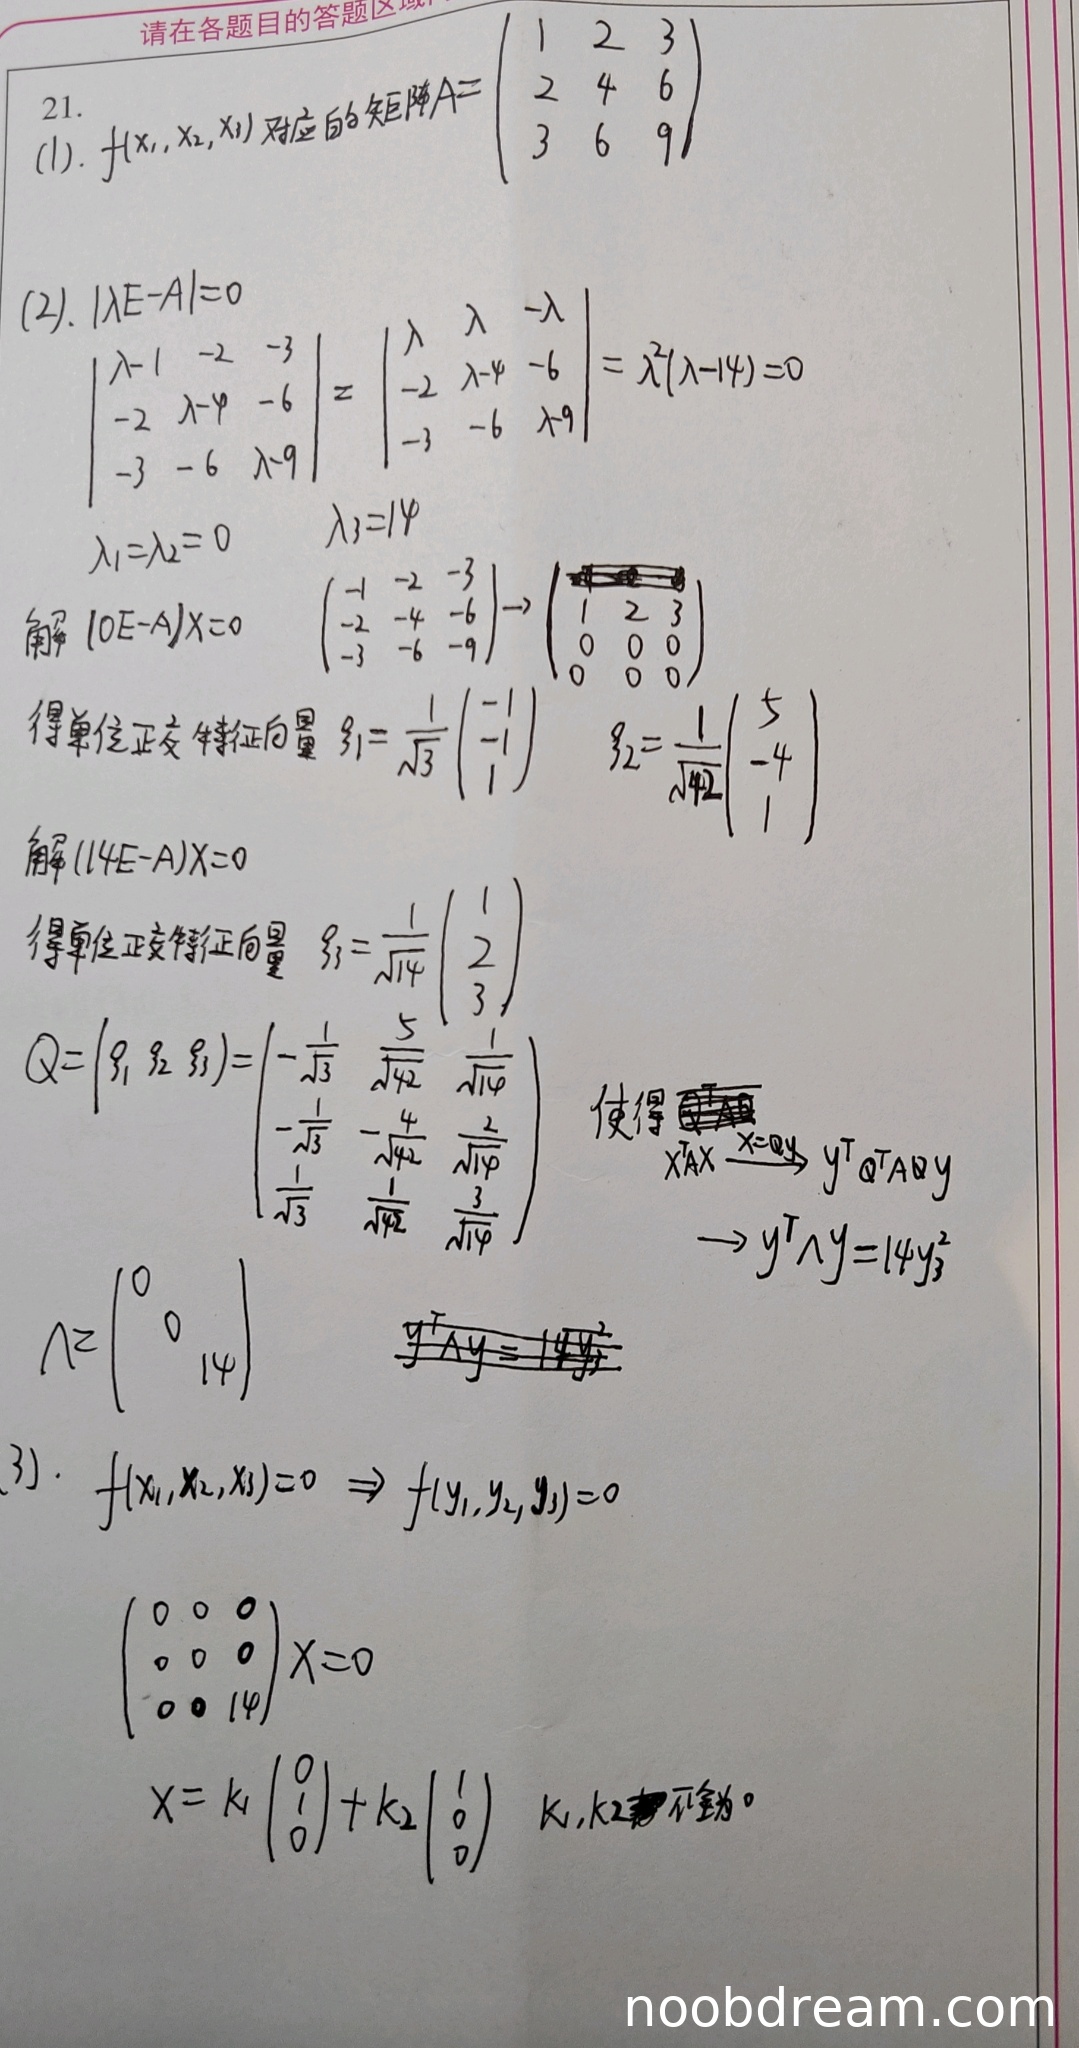 请在各题目的答题区域
21.
(1). f(x₁, x₂, x₃) 对应的矩阵A= ( 1 2 3
2 4 6
3 6 9 )
(2). |λE-A|=0
| λ-1 -2 -3
-2 λ-4 -6
-3 -6 λ-9 | = | λ λ -λ
-2 λ-4 -6
-3 -6 λ-9 | = λ²(λ-14)=0
λ₁=λ₂=0 λ₃=14
解 (0E-A)X=0 ( -1 -2 -3
-2 -4 -6
-3 -6 -9 ) → ( 1 2 3
0 0 0
0 0 0 )
得单位正交特征向量 ξ₁= 1/√3 ( -1
-1
1 ) ξ₂= 1/√42 ( 5
-4
1 )
解(14E-A)X=0
得单位正交特征向量 ξ₃= 1/√14 ( 1
2
3 )
Q=(ξ₁ ξ₂ ξ₃)= ( -1/√3 5/√42 1/√14
-1/√3 -4/√42 2/√14
1/√3 1/√42 3/√14 )
使得
XᵀAX —X=Qy→ yᵀQᵀAQy
→ yᵀΛy=14y₃²
Λ= ( 0
0
14 )
yᵀΛy = 14y₃²
3). f(x₁, x₂, x₃)=0 ⇒ f(y₁, y₂, y₃)=0
( 0 0 0
0 0 0
0 0 14 ) X=0
X= k₁ ( 0
1
0 ) + k₂ ( 1
0
0 ) k₁, k₂ 不全为0
noobdream.com